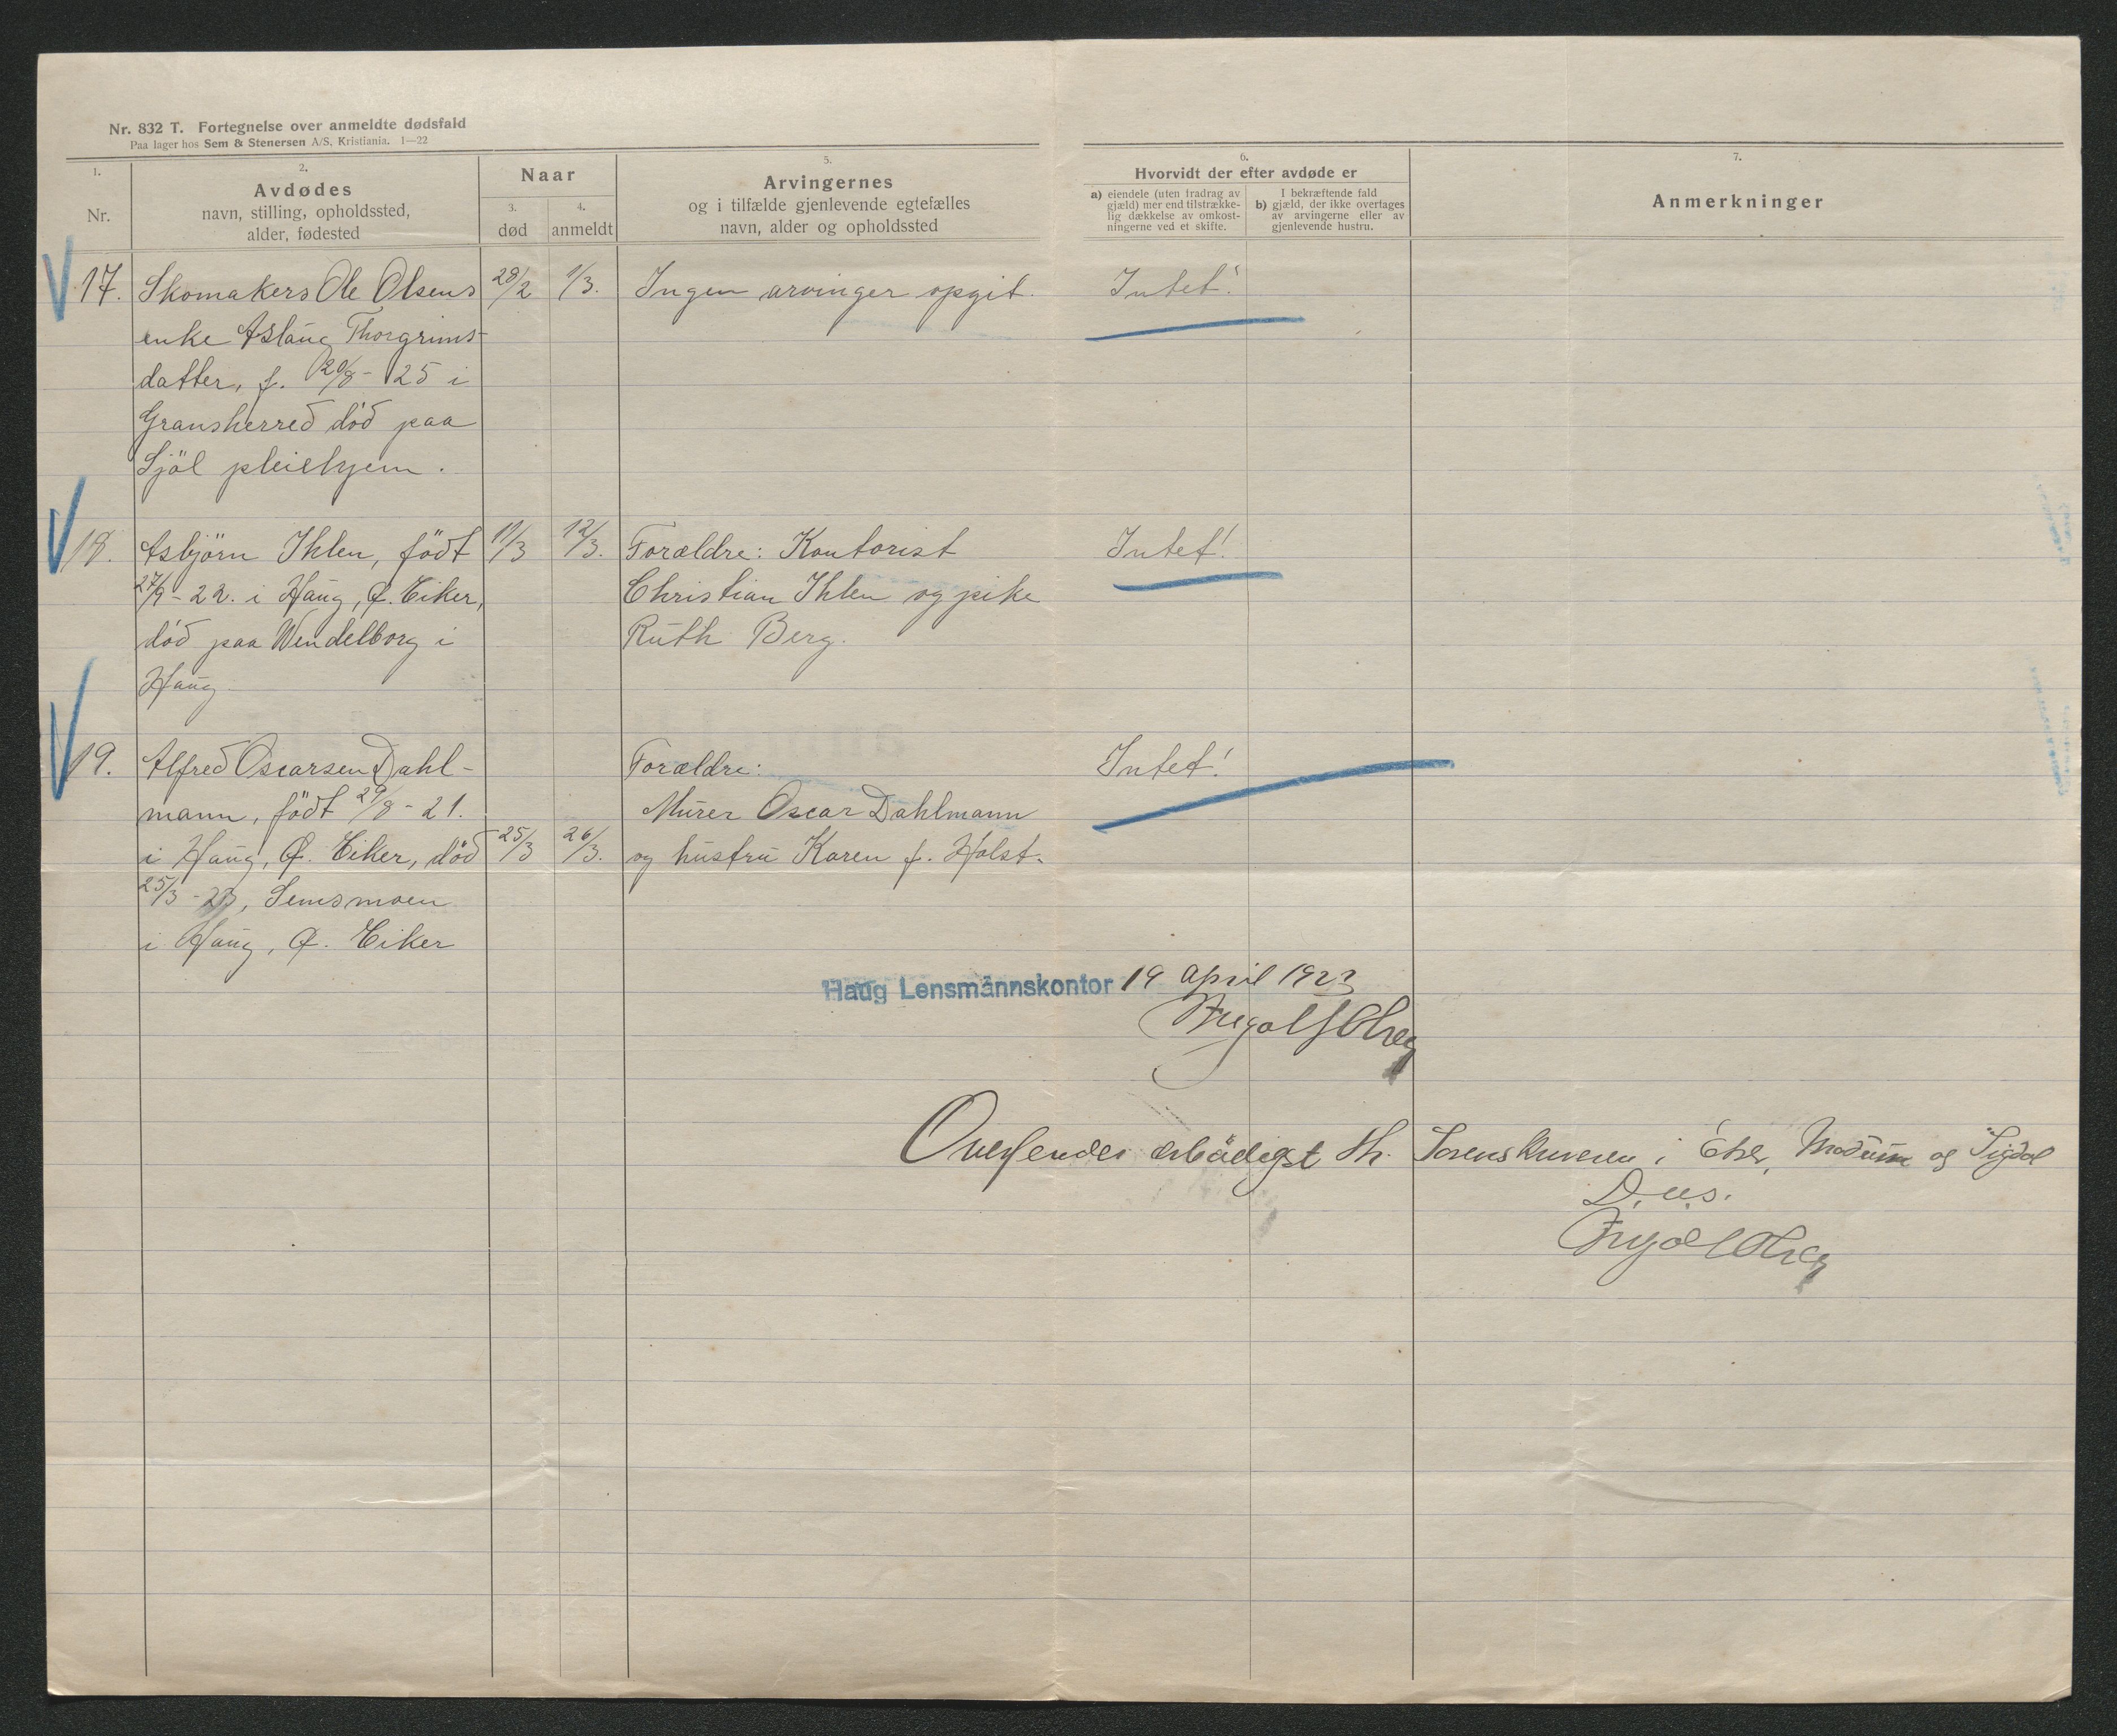 Nr. 832 T. Fortegnelse over anmeldte dødsfald
Paa lager hos Sem & Stenersen A/S, Kristiania. 1—22
1.
Nr.
2.
Avdødes
navn, stilling, opholdssted,
alder, fødested
Naar
3.
død
4.
anmeldt
5.
Arvingernes
og i tilfælde gjenlevende egtefælles
navn, alder og opholdssted
6.
Hvorvidt der efter avdøde er
a) eiendele (uten fradrag av
gjæld) mer end tilstrække-
lig dækkelse av omkost-
ningerne ved et skifte.
I bekræftende fald
b) gjæld, der ikke overtages
av arvingerne eller av
gjenlevende hustru.
7.
Anmerkninger
17. Skomakers Ole Olsens 28/2 1/3. Ingen arvinger opgit. Intet!
enke Aslaug Thorgrims-
datter, f. 20/8 - 25 i
Gransherred död paa
Sjöl pleiehjem.
18. Asbjörn Ihlen, födt 11/3 12/3. Forældre: Kontorist Intet!
27/9 - 22. i Haug, Ø. Eiker, Christian Ihlen og pike
död paa Wendelborg i Ruth Berg.
Haug
19. Alfred Oscarsen Dahl- Forældre: Intet!
mann, födt 29/8 - 21. Murer Oscar Dahlmann
i Haug, Ø. Eiker, död 25/3 26/3. og hustru Karen f. Holst.
25/3 - 23, Semsmoen
i Haug, Ø. Eiker
Haug Lensmannskontor 19 april 1923
Oversendes ærbödigst Hr. Sorenskriveren i Eker, Modum og Sigdal
D. u. s.